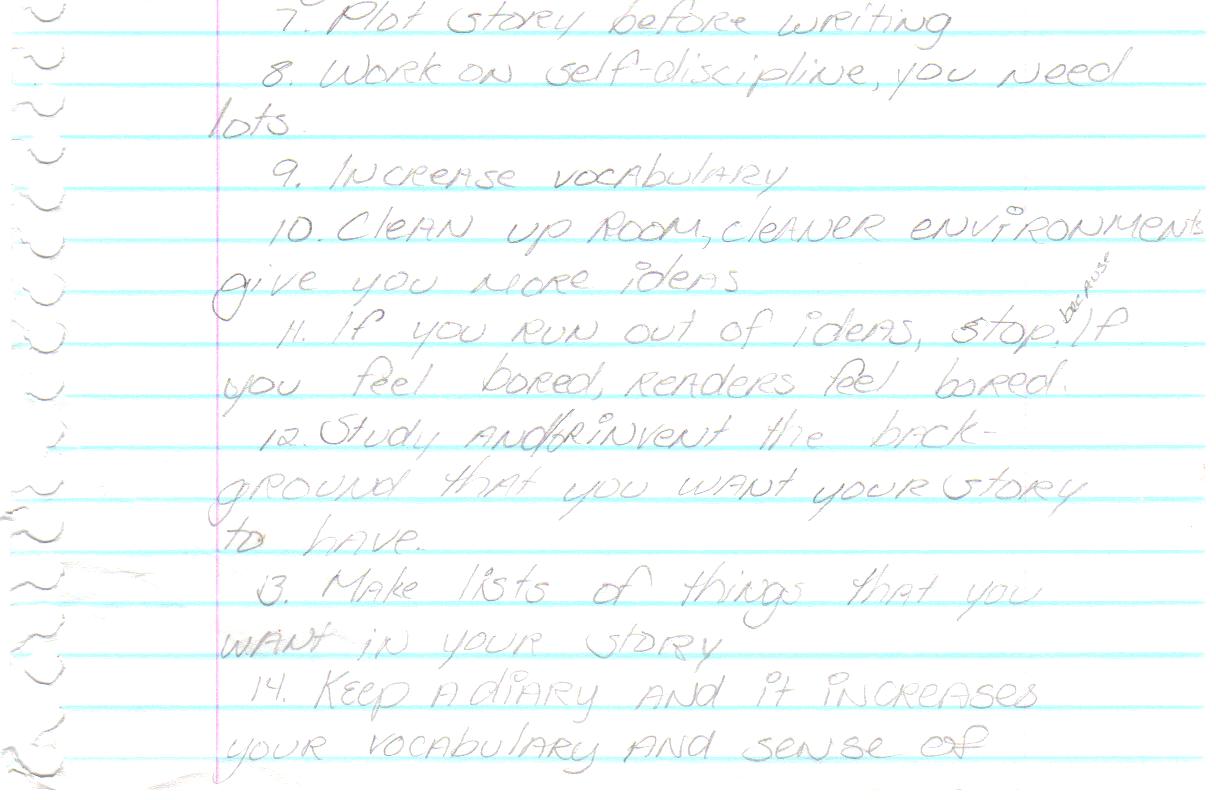 7. Plot story before writing
8. Work on self-discipline, you need
lots
9. Increase vocabulary
10. Clean up room, cleaner environments
give you more ideas
11. If you run out of ideas, stop. because If
you feel bored, readers feel bored.
12. Study and/or invent the back-
ground that you want your story
to have.
13. Make lists of things that you
want in your story
14. Keep a diary and it increases
your vocabulary and sense of